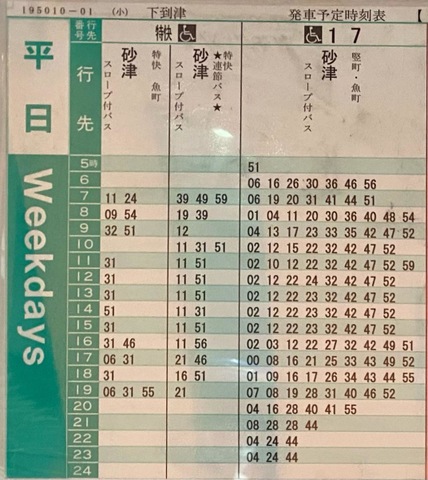 195010-01 (小) 下到津 発車予定時刻表 【
行先番号 特快 1 7
平日 Weekdays
行先
砂津 特快 魚町 スロープ付バス
砂津 ★特快 ★連節バス★ スロープ付バス
砂津 竪町・魚町 スロープ付バス
5時 51
6 06 16 26 30 36 46 56
7 11 24 39 49 59 06 19 20 31 41 44 51
8 09 54 19 39 01 04 11 20 30 36 40 48 54
9 32 51 12 04 13 17 23 33 35 42 47 52
10 11 31 51 02 12 15 22 32 42 47 52
11 31 11 51 02 10 12 22 32 42 47 52 59
12 31 11 51 02 12 22 24 32 42 47 52
13 31 11 51 02 12 22 23 32 42 47 52
14 51 11 31 02 12 22 23 32 42 47 52
15 31 11 51 02 12 22 23 32 42 47 52
16 31 46 11 56 02 03 12 22 27 32 42 49 51
17 06 31 21 46 00 08 16 21 25 33 43 49 52
18 31 16 51 01 09 16 17 26 34 43 44 55
19 06 31 55 21 07 08 19 28 31 40 46 52
20 04 16 28 40 41 55
21 08 28 28 44
22 04 24 44
23 04 24 44
24